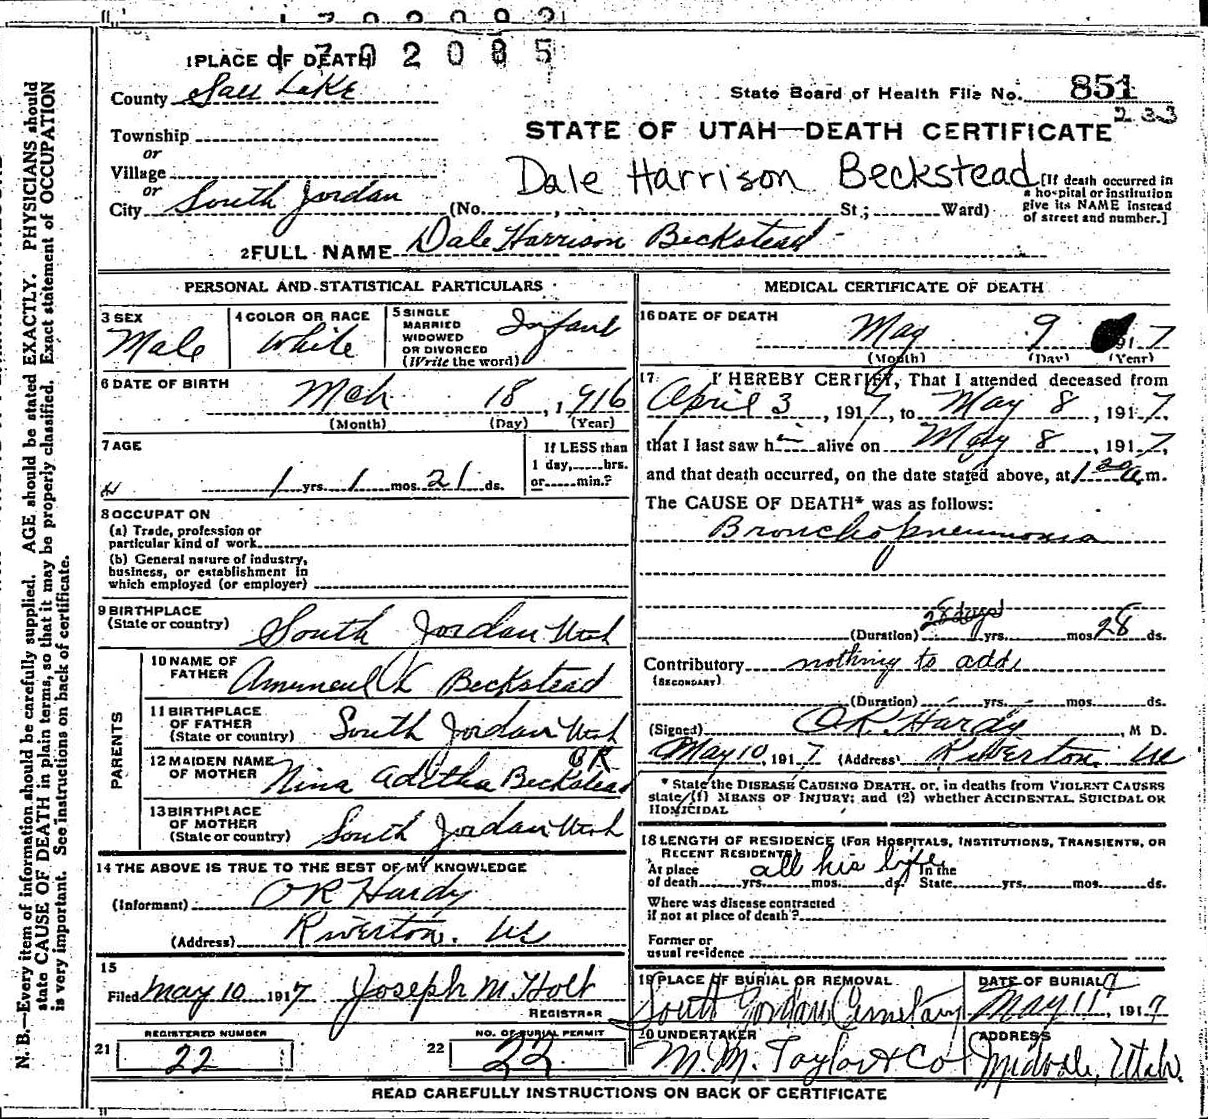 1702092
1 PLACE OF DEATH 1702085
County Salt Lake
State Board of Health File No. 851
233
Township
STATE OF UTAH—DEATH CERTIFICATE
or
Village
Dale Harrison Beckstead
or
City South Jordan (No. , St.; Ward)
[If death occurred in
a hospital or institution
give its NAME instead
of street and number.]
2 FULL NAME Dale Harrison Beckstead
PERSONAL AND STATISTICAL PARTICULARS
3 SEX
Male
4 COLOR OR RACE
White
5 SINGLE
MARRIED
WIDOWED
OR DIVORCED
(Write the word)
Infant
6 DATE OF BIRTH
Mch 18, 1916
(Month) (Day) (Year)
7 AGE
1 yrs. 1 mos. 21 ds.
If LESS than
1 day,......hrs.
or......min.?
8 OCCUPATION
(a) Trade, profession or
particular kind of work
(b) General nature of industry,
business, or establishment in
which employed (or employer)
9 BIRTHPLACE
(State or country)
South Jordan Utah
PARENTS
10 NAME OF
FATHER
Beckstead
11 BIRTHPLACE
OF FATHER
(State or country)
South Jordan Utah
12 MAIDEN NAME
OF MOTHER
Nina Aditha Beckstead
13 BIRTHPLACE
OF MOTHER
(State or country)
South Jordan Utah
14 THE ABOVE IS TRUE TO THE BEST OF MY KNOWLEDGE
(Informant) OR Hardy
(Address) Riverton. Ut
15
Filed May 10 1917 Joseph M. Holt
REGISTRAR
REGISTERED NUMBER
21 22
NO. OF BURIAL PERMIT
22 22
MEDICAL CERTIFICATE OF DEATH
16 DATE OF DEATH
May 9 1917
(Month) (Day) (Year)
17 I HEREBY CERTIFY, That I attended deceased from
April 3, 1917, to May 8, 1917,
that I last saw h alive on May 8, 1917,
and that death occurred, on the date stated above, at 1 20 a.m.
The CAUSE OF DEATH* was as follows:
Broncho pneumonia
(Duration) 28 days yrs. mos. 28 ds.
Contributory nothing to add
(SECONDARY)
(Duration) yrs. mos. ds.
(Signed) O.R. Hardy, M D.
May 10, 1917 (Address) Riverton. Ut
* State the DISEASE CAUSING DEATH, or, in deaths from VIOLENT CAUSES
state (1) MEANS OF INJURY; and (2) whether ACCIDENTAL, SUICIDAL OR
HOMICIDAL
18 LENGTH OF RESIDENCE (FOR HOSPITALS, INSTITUTIONS, TRANSIENTS, OR
RECENT RESIDENTS)
At place all his life In the
of death yrs. mos. ds. State yrs. mos. ds.
Where was disease contracted
if not at place of death?
Former or
usual residence
19 PLACE OF BURIAL OR REMOVAL
South Jordan Cemetary
DATE OF BURIAL
May 11, 1917
20 UNDERTAKER
M. M. Taylor & Co
ADDRESS
Midvale, Utah.
READ CAREFULLY INSTRUCTIONS ON BACK OF CERTIFICATE
N. B.—Every item of information should be carefully supplied. AGE should be stated EXACTLY. PHYSICIANS should
state CAUSE OF DEATH in plain terms, so that it may be properly classified. Exact statement of OCCUPATION
is very important. See instructions on back of certificate.